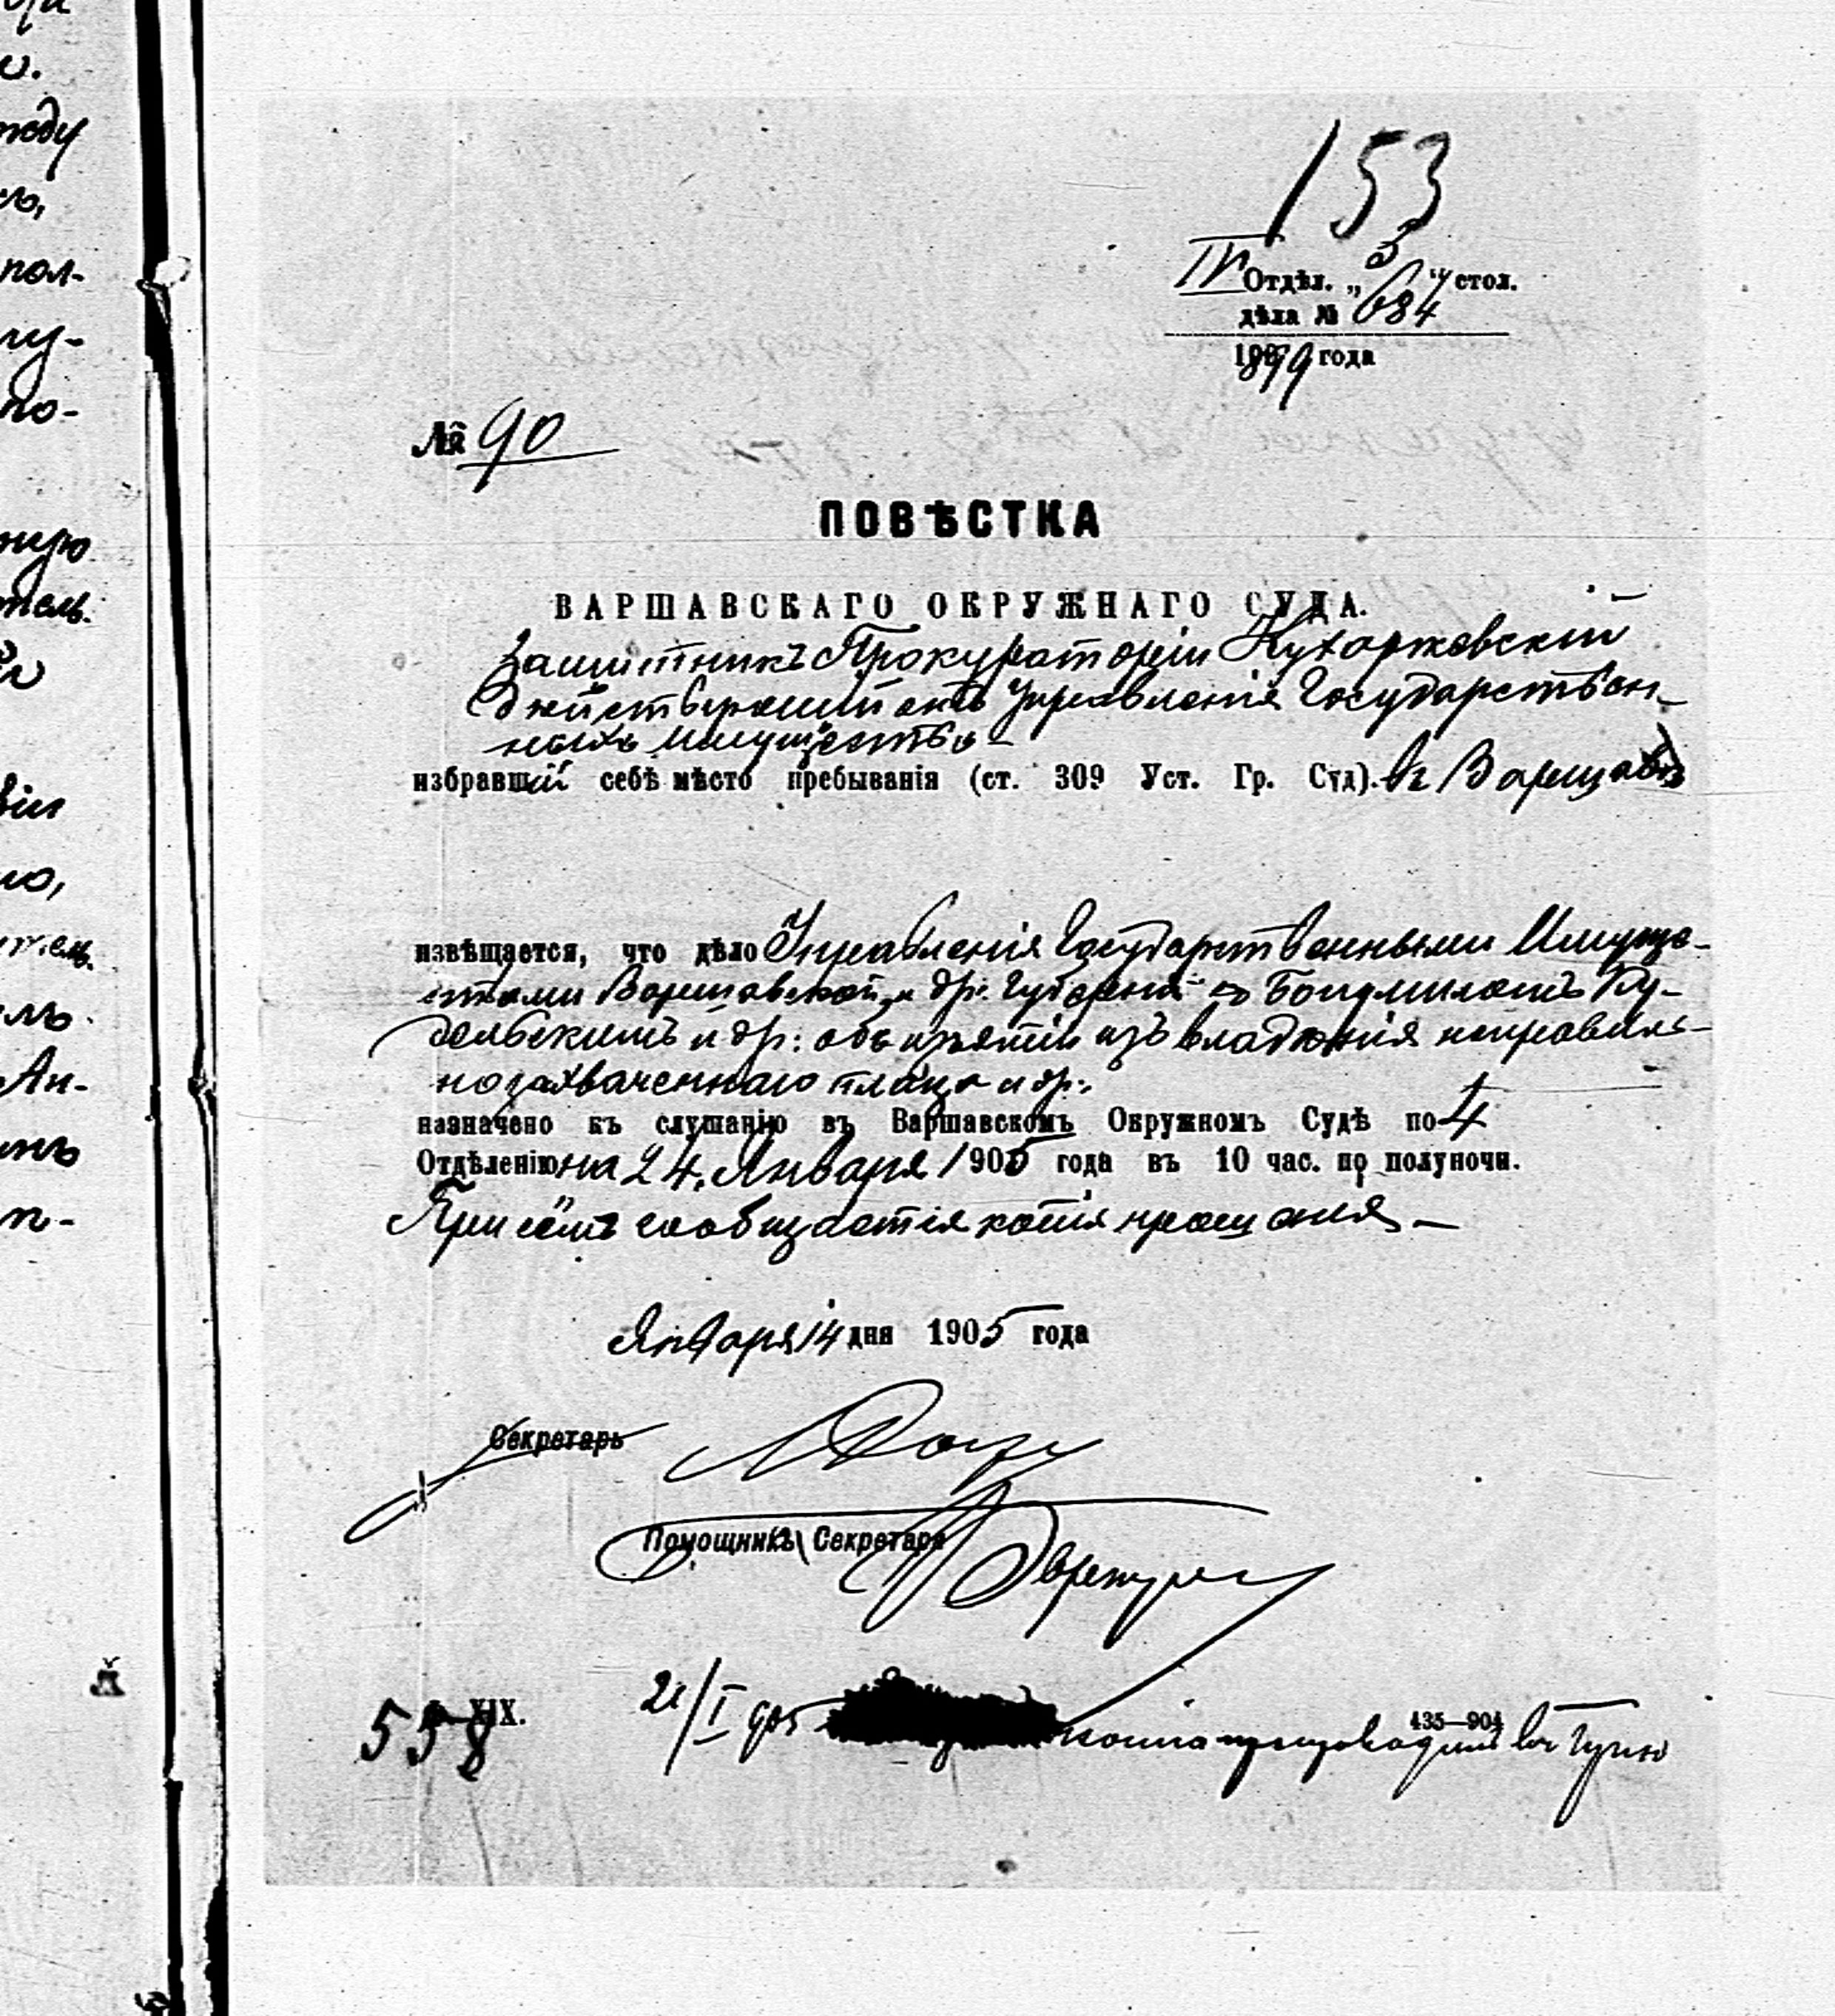 153
IV Отдѣл. „ б " стол.
дѣла № 684
1899 года
№ 90
ПОВѢСТКА
ВАРШАВСКАГО ОКРУЖНАГО СУДА.
Защитникъ Прокураторіи Кухаржевскій
дѣйствующій отъ Управленія Государствен-
ныхъ имуществъ
избравшій себѣ мѣсто пребыванія (ст. 309 Уст. Гр. Суд). въ Варшавѣ
извѣщается, что дѣло Управленія Государственными Имуще-
ствами Варшавской и др: губерній съ Богумиломъ
и др: объ изъятіи изъ владѣнія неправиль-
но захваченнаго плаца и др:
назначено къ слушанію въ Варшавскомъ Окружномъ Судѣ по 4
Отдѣленію на 24 Января 1905 года въ 10 час. по полуночи.
При семъ сообщается копія прошенія
Января 14 дня 1905 года
Секретарь
Помощникъ Секретаря
558
XIX.
21/I 905 копія въ
435—904
ду
пол-
гу-
по-
Ан-
п-